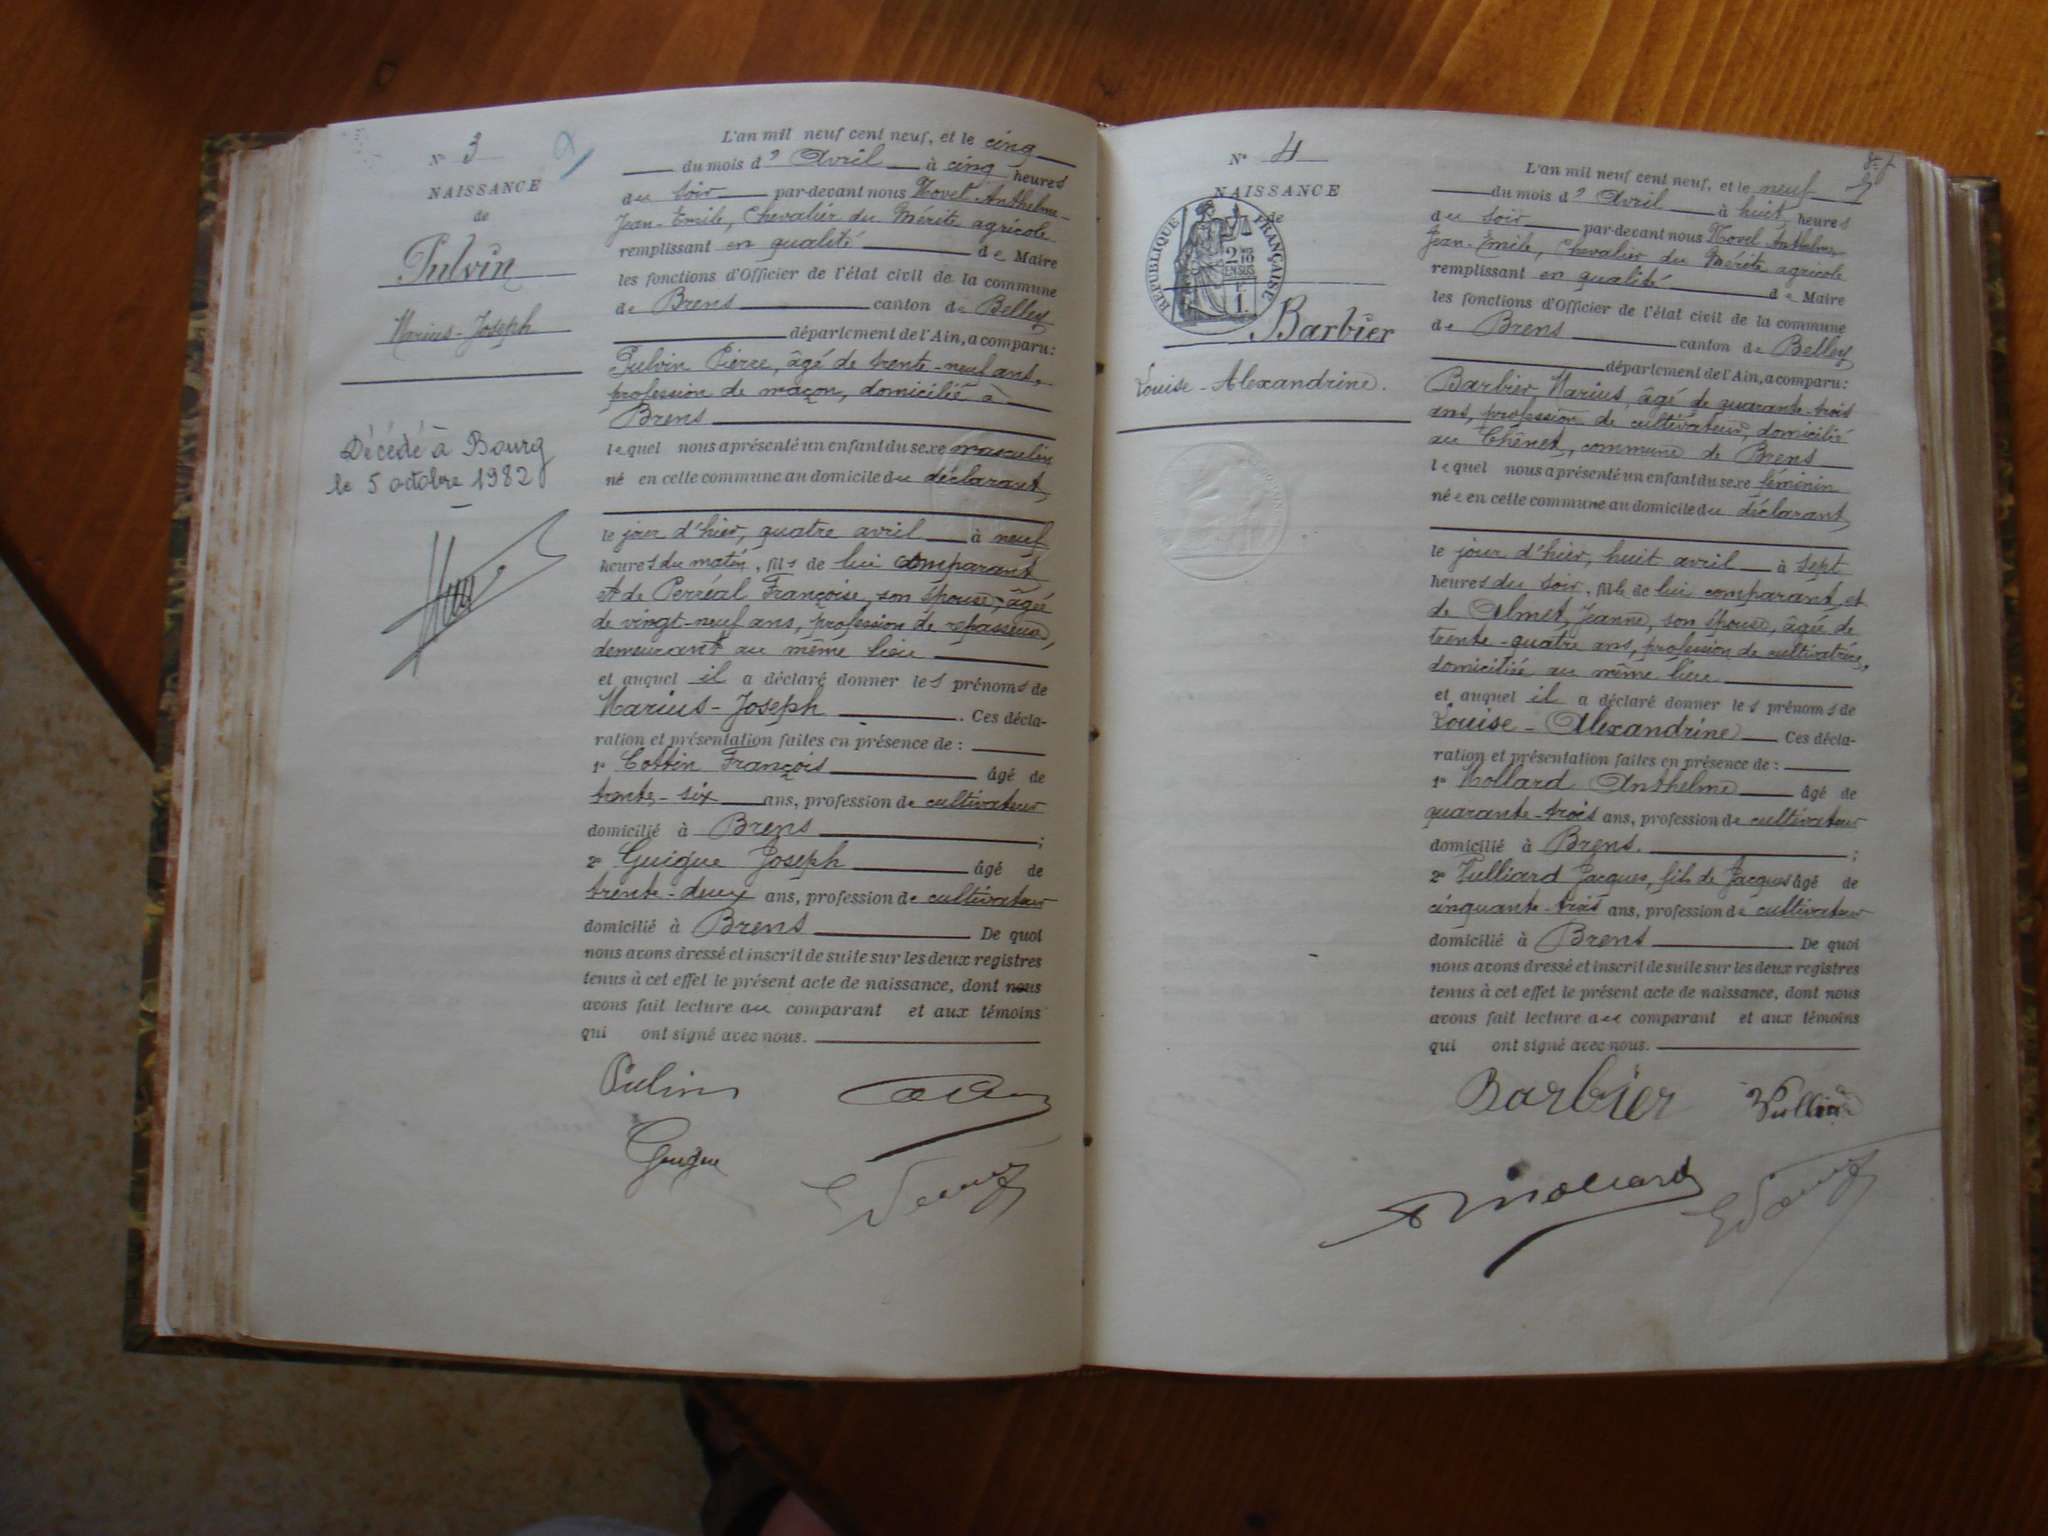 N° 3
NAISSANCE
de
Pulvin
Marius-Joseph
Décédé à Bourg
le 5 octobre 1982
L'an mil neuf cent neuf, et le cinq
du mois d' Avril à cinq heures
du soir par-devant nous Novel Anthelme-
Jean-Emile, Chevalier du Mérite agricole
remplissant en qualité de Maire
les fonctions d'Officier de l'état civil de la commune
de Brens canton de Belley
département de l'Ain, a comparu:
Pulvin Pierre, âgé de trente-neuf ans,
profession de maçon, domicilié à
Brens
lequel nous a présenté un enfant du sexe masculin
né en cette commune au domicile du déclarant
le jour d'hier, quatre avril à neuf
heures du matin, fils de lui comparant
et de Perréal Françoise, son épouse, âgée
de vingt-neuf ans, profession de repasseuse,
demeurant au même lieu
et auquel il a déclaré donner les prénoms de
Marius-Joseph. Ces décla-
ration et présentation faites en présence de :
1° Cottin François âgé de
trente-six ans, profession de cultivateur
domicilié à Brens ;
2° Guigue Joseph âgé de
trente-deux ans, profession de cultivateur
domicilié à Brens De quoi
nous avons dressé et inscrit de suite sur les deux registres
tenus à cet effet le présent acte de naissance, dont nous
avons fait lecture au comparant et aux témoins
qui ont signé avec nous.
Pulvin
Guigue
N° 4
NAISSANCE
de
RÉPUBLIQUE FRANÇAISE
2 10
EN SUS
1
Barbier
Louise-Alexandrine.
L'an mil neuf cent neuf, et le neuf
du mois d' Avril à huit heures
du soir par-devant nous Novel Anthelme
Jean-Emile, Chevalier du Mérite agricole
remplissant en qualité de Maire
les fonctions d'Officier de l'état civil de la commune
de Brens canton de Belley
département de l'Ain, a comparu:
Barbier Marius, âgé de quarante-trois
ans, profession de cultivateur, domicilié
au Chênet, commune de Brens
lequel nous a présenté un enfant du sexe féminin
née en cette commune au domicile du déclarant
le jour d'hier, huit avril à sept
heures du soir, fille de lui comparant et
de Almet, Jeanne, son épouse, âgée de
trente-quatre ans, profession de cultivatrice,
domiciliée au même lieu
et auquel il a déclaré donner les prénoms de
Louise-Alexandrine Ces décla-
ration et présentation faites en présence de :
1° Mollard Anthelme âgé de
quarante-trois ans, profession de cultivateur
domicilié à Brens. ;
2° Vulliard Jacques, fils de Jacques âgé de
cinquante-trois ans, profession de cultivateur
domicilié à Brens De quoi
nous avons dressé et inscrit de suite sur les deux registres
tenus à cet effet le présent acte de naissance, dont nous
avons fait lecture au comparant et aux témoins
qui ont signé avec nous.
Barbier